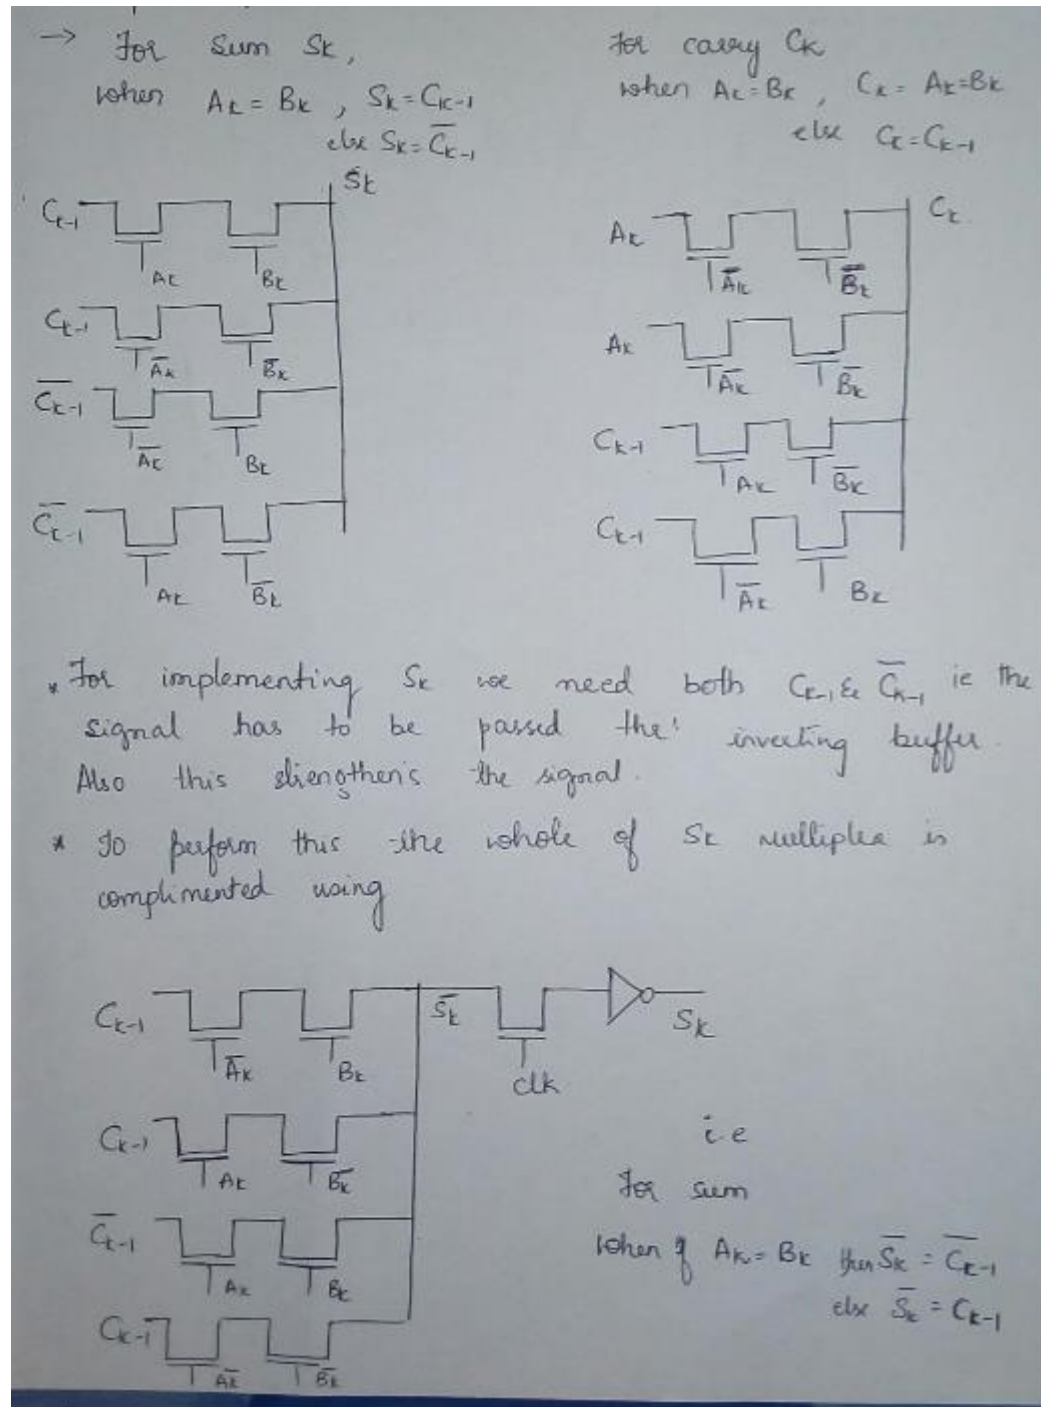 → For Sum Sk,
when Ak = Bk , Sk = Ck-1
else Sk = C̅k-1
For carry Ck
when Ak = Bk , Ck = Ak=Bk
else Ck = Ck-1
Sk
Ck-1
Ak Bk
Ck-1
A̅k B̅k
C̅k-1
A̅k Bk
C̅k-1
Ak B̅k
Ck
Ak
A̅k B̅k
Ak
A̅k B̅k
Ck-1
Ak B̅k
Ck-1
A̅k Bk
* For implementing Sk we need both Ck-1 & C̅k-1 ie the
signal has to be passed the' inverting buffer.
Also this strengthen's the signal.
* To perform this the whole of Sk multiplex is
complimented using
Ck-1 S̅k Sk
A̅k Bk clk
Ck-1
Ak B̅k
C̅k-1
Ak Bk
Ck-1
A̅k B̅k
i.e
For sum
when if Ak = Bk then S̅k = C̅k-1
else S̅k = Ck-1